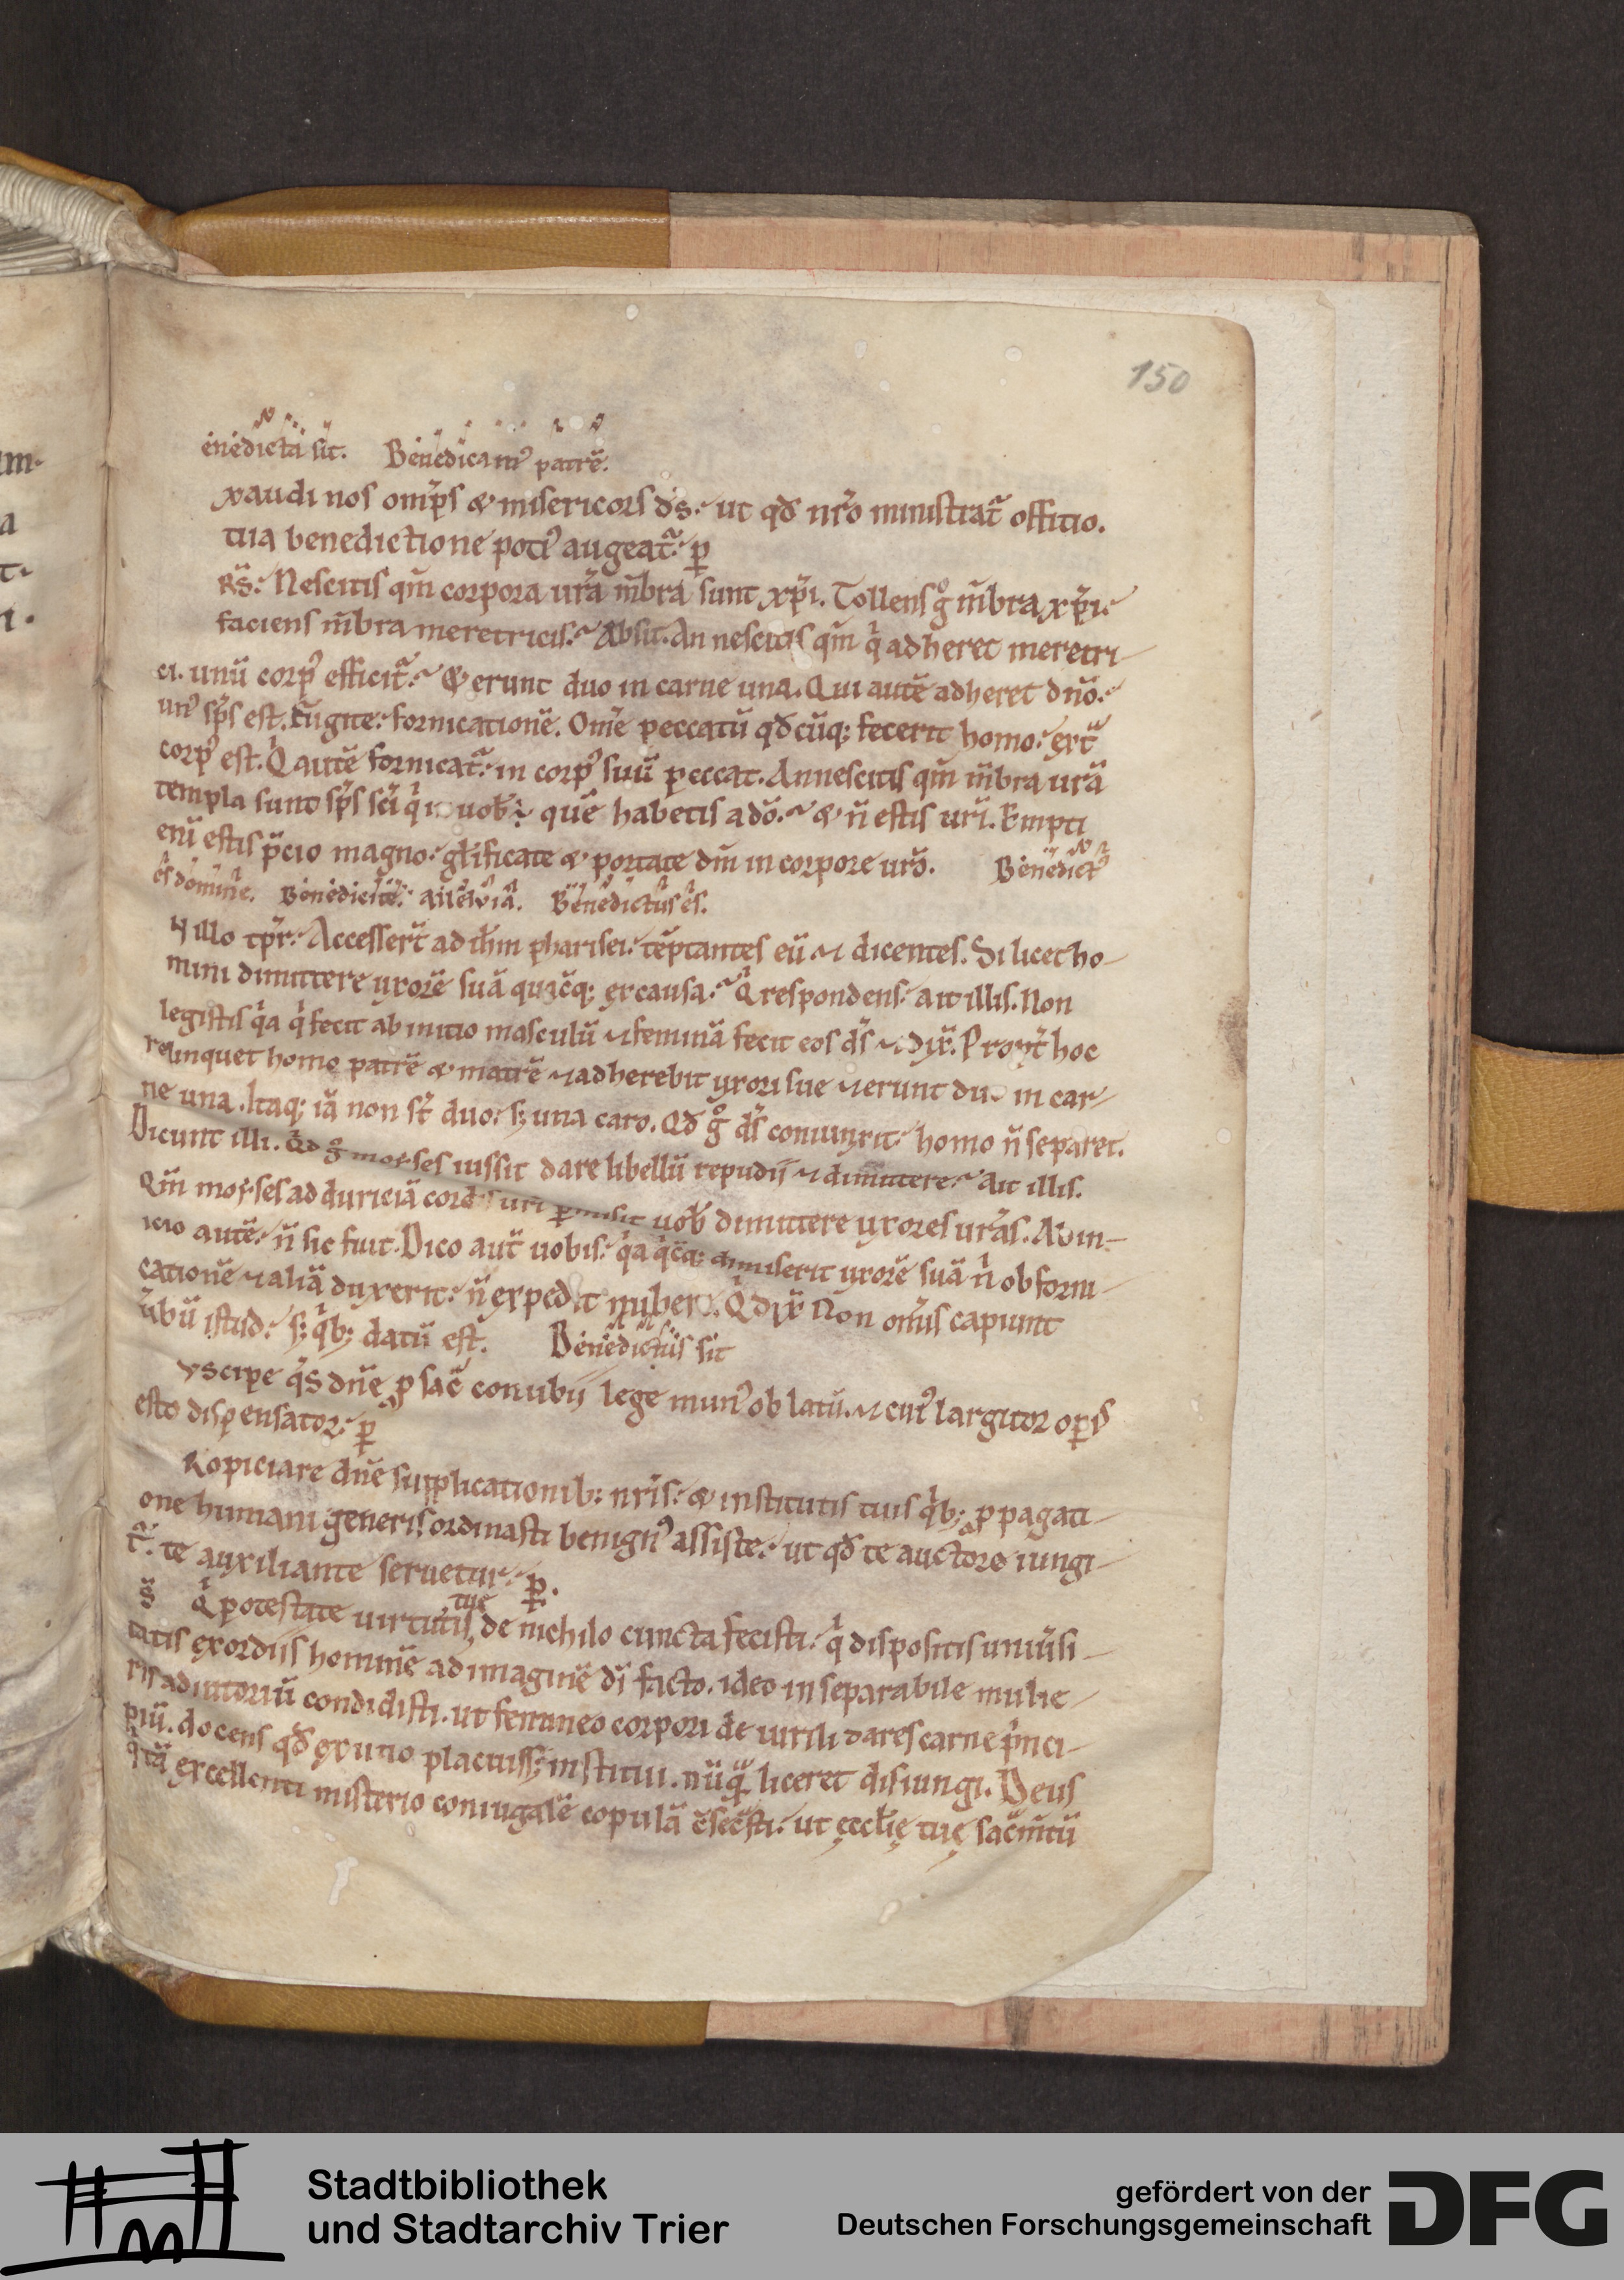 150
enedicta sit. Benedicam᷒ patrē.
xaudi nos omp̄s & misericors ds̄. ut qđ nr̄o ministrat᷑ offitio.
tua benedictione poti᷒ augeat᷑. p̄
Rs̄. Nescitis qm̄ corpora ur̄a m̄bra sunt xp̄i. Tollens gͦ m̄bra xp̄i.
faciens m̄bra meretricis. Absit. An nescitis qm̄ qͥ adheret meretri-
ci. unū corp᷒ efficit᷑. & erunt duo in carne una. Qui autē adheret dn̄o.
un᷒ sp̄s est. Fugite fornicationē. Om̄e peccatū qđcūq; fecerit homo. ext᷑
corp᷒ est. Qͥ autē fornicat᷑. in corp᷒ suū peccat. An nescitis qm̄ m̄bra ur̄a
templa sunt sp̄s sc̄i qͥ in uob̄ quē habetis a dō. & n̄ estis ur̄i. Empti
enī estis p̄cio magno. gl̄ificate & portate dm̄ in corpore ur̄o. Benedict᷒
es domine. Benedicite. aileluia. Benedictus es.
N illo tp̄r. Accesser̄t ad ih̄m pharisei. tēptantes eū & dicentes. Si licet ho-
mini dimittere uxorē suā quacūq; ex causa. Qͥ respondens. ait illis. Non
legistis qͥa qͥ fecit ab initio masculū & feminā fecit eos ds̄ & dix̄. Propt̄ hoc
relinquet homo patrē & matrē & adherebit uxori sue & erunt duo in car-
ne una. Itaq; iā non st̄ duo. s; una caro. Qđ gͦ ds̄ coniunxit. homo n̄ separet.
Dicunt illi. Qͥd gͦ moyses iussit dare libellū repudii & dimittere. Ait illis.
Qm̄ moyses ad duriciā cordis ur̄i p̄misit uob̄ dimittere uxores ur̄as. Ab in-
icio autē. n̄ sic fuit. Dico aut̄ uobis. qͥa qͥcūq; dimiserit uxorē suā nͥ ob forni-
cationē & aliā duxerit. n̄ expedit nubere. Qͥ dix̄ Non om̄s capiunt
ūbū istud. s; qͥb; datū est. Benedictus sit
uscipe qͣs dn̄e p sac̄ conubii lege mun᷒ oblatū. & cui᷒ largitor opis
esto dispensator. p̄
Ropiciare dn̄e supplicationib; nr̄is. & institutis tuis qͥb; ppagati-
one humani generis ordinasti benign᷒ assiste. ut qđ te auctore iungi-
t᷑. te auxiliante seruetur. p̄.
s̄ Qͥ potestate uirtutis tuę de nichilo cuncta fecisti. qͥ dispositis uniūsi-
tatis exordiis hominē ad imaginē dī facto. ideo inseparabile mulie-
ris adiutoriū condidisti. ut femineo corpori de uirili dares carne pͥnci-
piū. docens qđ ex uno placuiss; institui. nūqͣ liceret disiungi. Deus
qͥ tā excellenti misterio coniugalē copulā c̄sec̄sti. ut ęccl̄ię tuę sac̄m̄tū
Stadtbibliothek
und Stadtarchiv Trier
gefördert von der
Deutschen Forschungsgemeinschaft
DFG